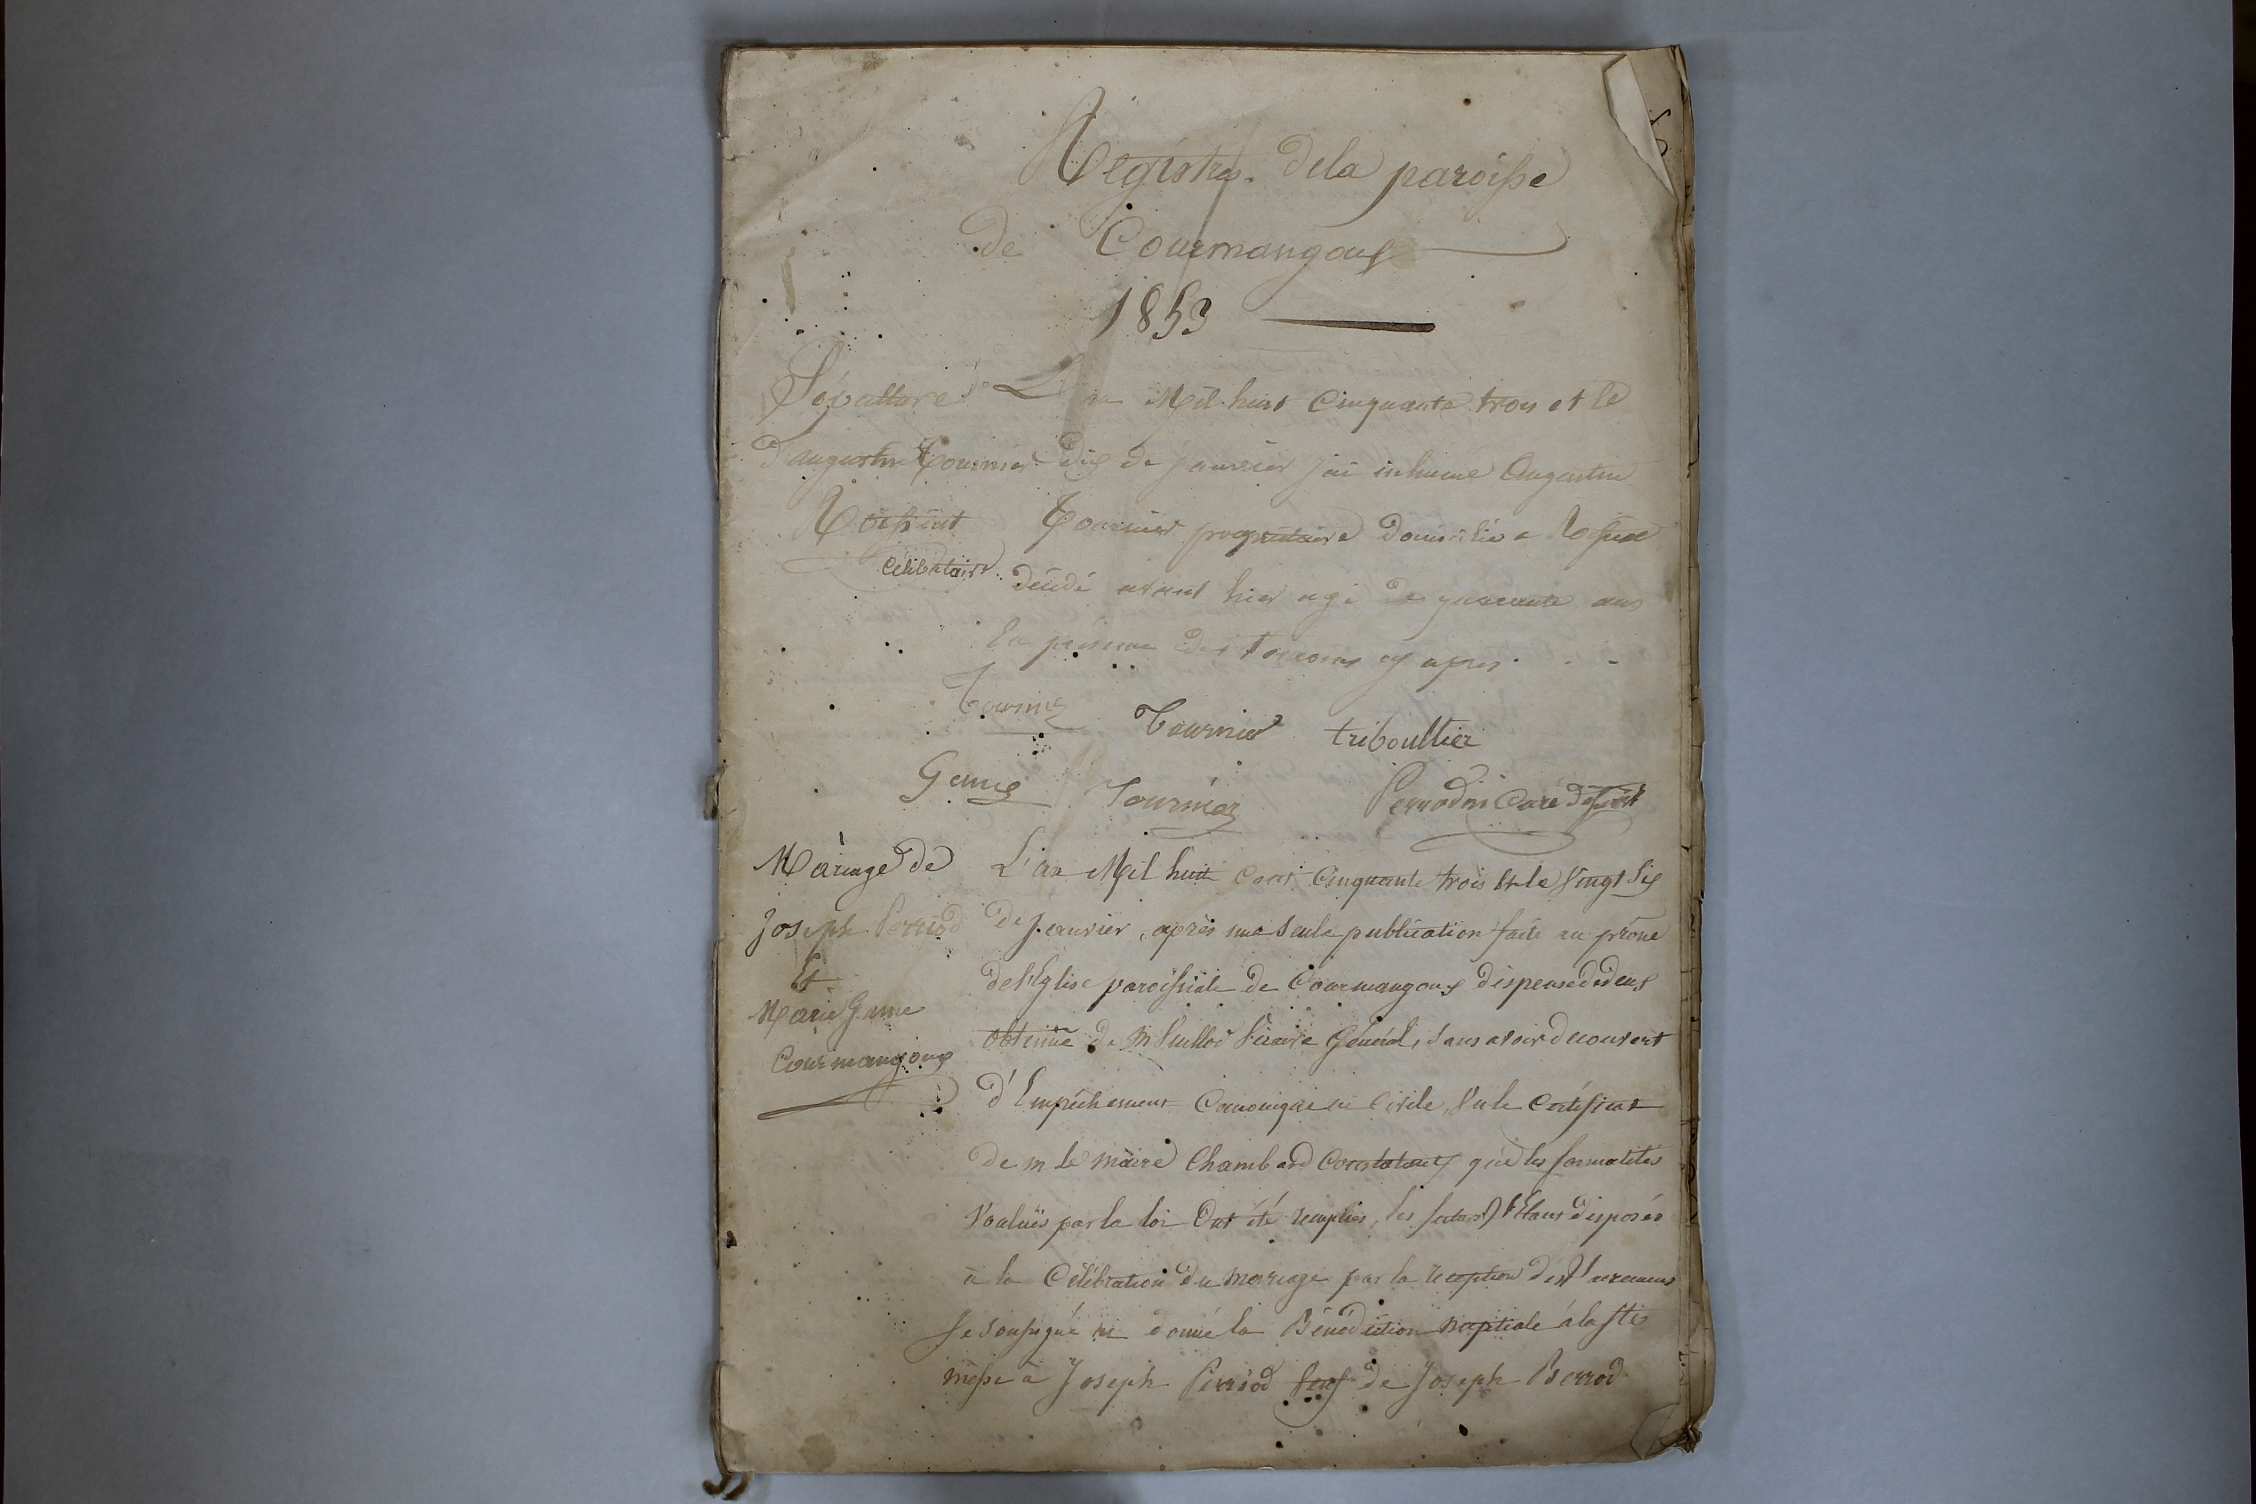 Registres de la paroisse
de Courmangoux
1853
Sépulture L'an Mil huit Cinquante trois et le
d'augustin Tournier dix de janvier jai inhumé Augustin
Roissiat Tournier propriétaire domicilié a
Célibataire décédé avant hier agé de quarante ans
En présence des temoins cy après
Tournier
Tournier triboultier
Tournier Perrodin Curé
Mariage de L'an Mil huit Cent Cinquante trois et le vingt Six
Joseph Perriod de janvier, après une seule publication faite au prône
Et de l'Eglise paroissiale de Courmangoux dispense de deux
Marie Jame obtenue de M Vicaire Général, sans avoir decouvert
Courmangoux d'Empêchement Canonique ni Civile, Vu le Certificat
de m le maire Chambard Constatant que les formalités
Voulues par la loi Ont été remplies, les futurs S'Etant disposés
à la Célébration du Mariage par la reception des Sacremens
Je soussigné ai donné la Bénédiction nuptiale à la Ste
messe à Joseph Perriod de Joseph Perrod